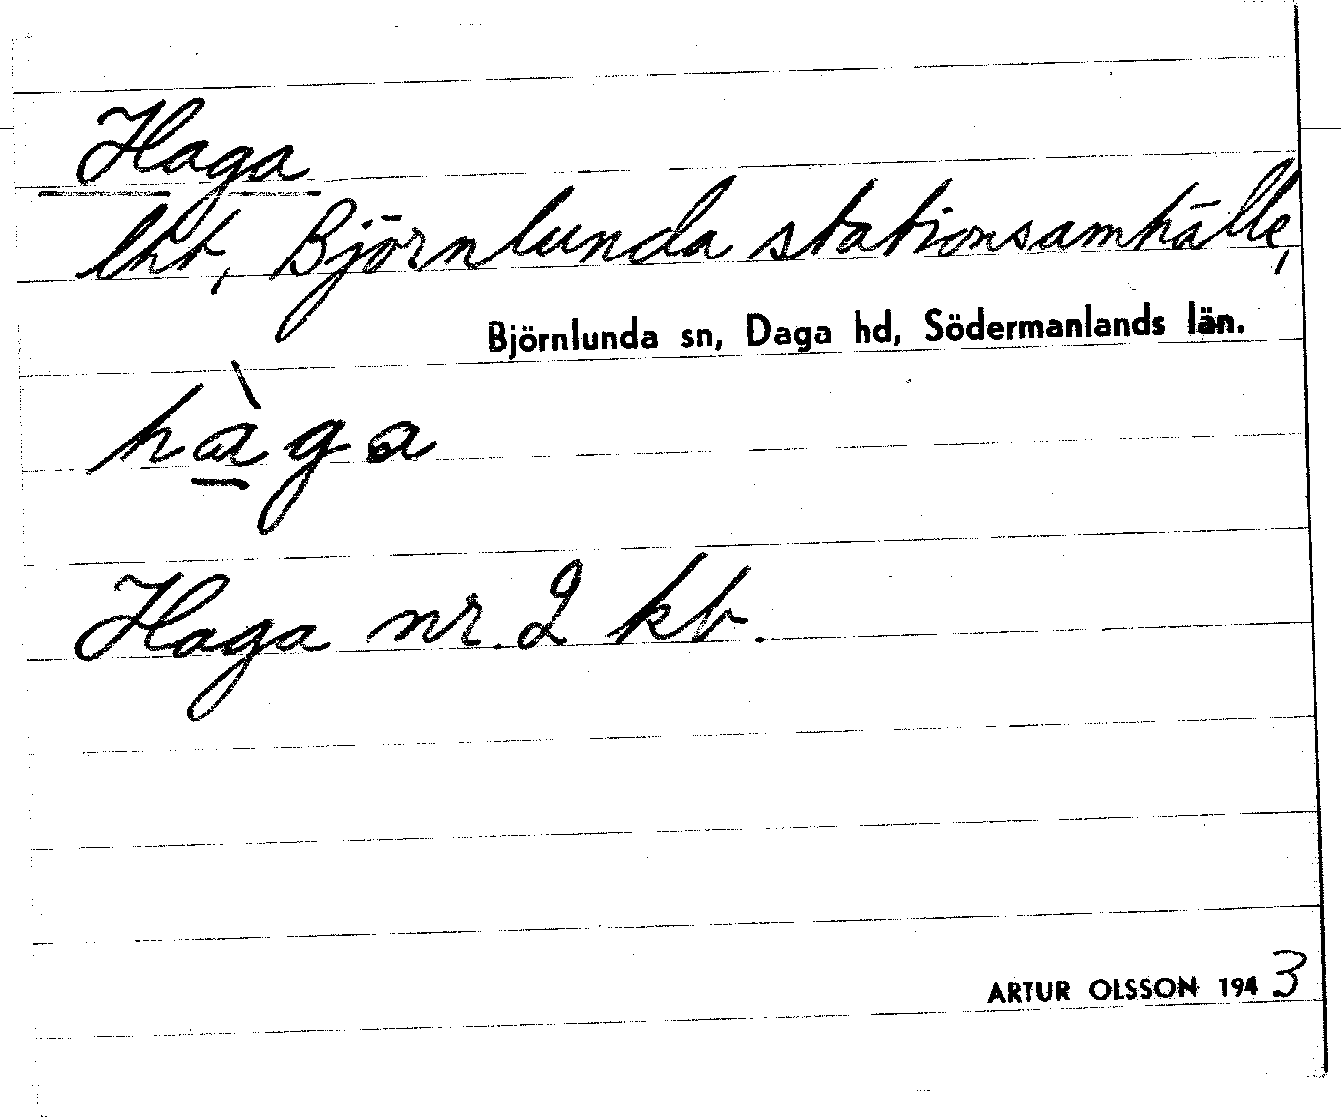 Haga
lht, Björnlunda stationsamhälle,
Björnlunda sn, Daga hd, Södermanlands län.
hàga
Haga nr. 2 kb.
ARTUR OLSSON 1943